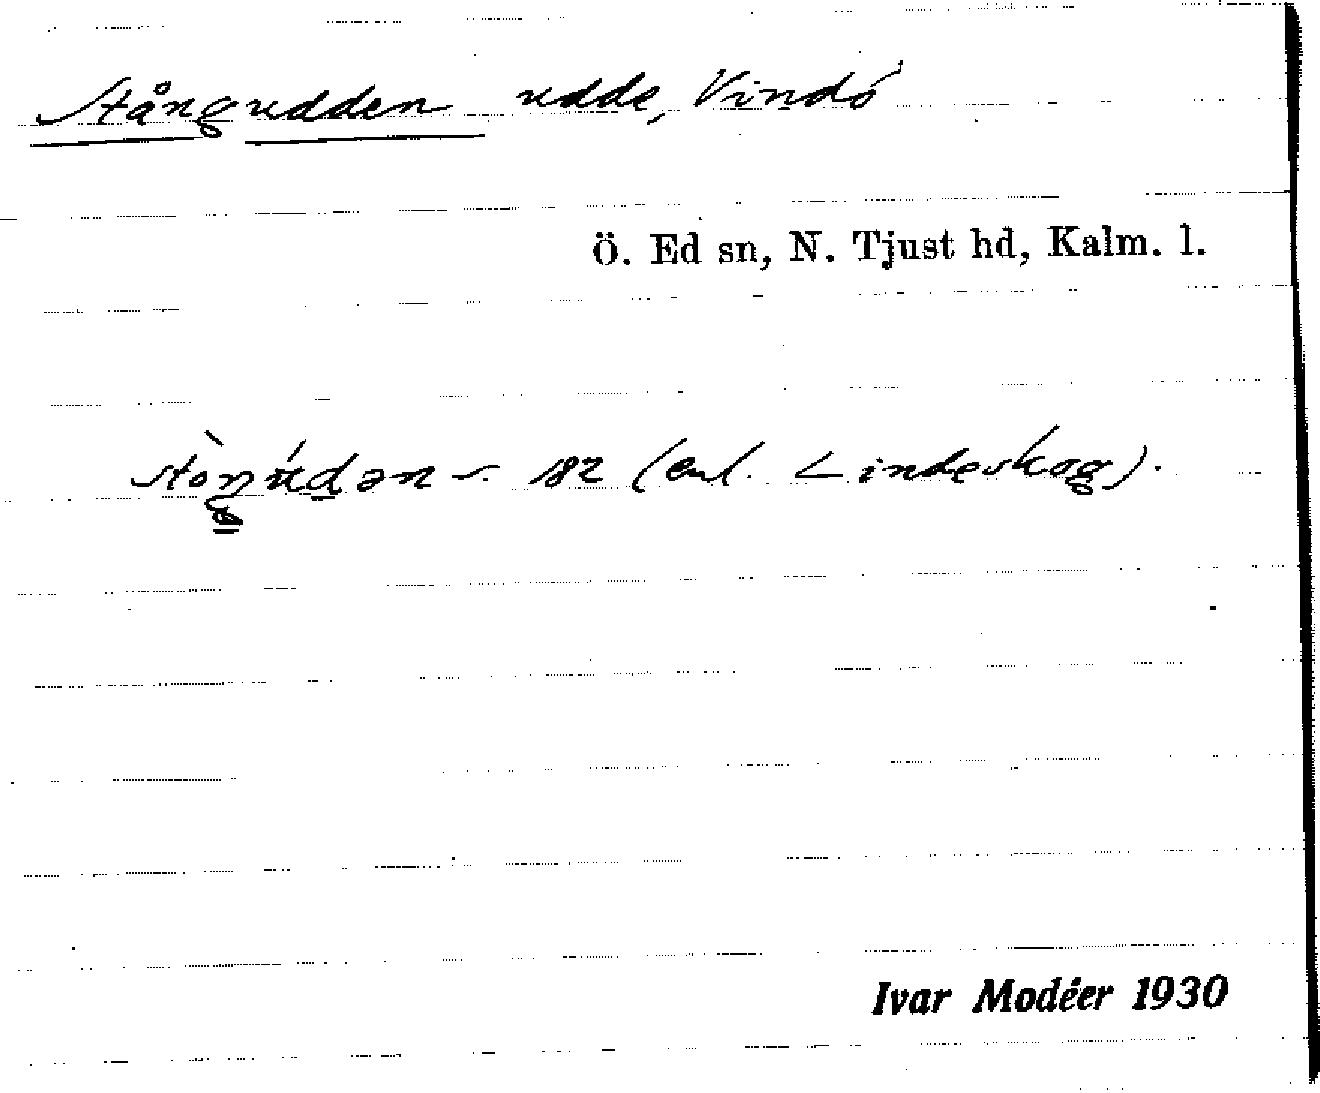 Stångudden udde, Vindö
Ö. Ed sn, N. Tjust hd, Kalm. l.
182 (enl. Lindeskog).
Ivar Modéer 1930